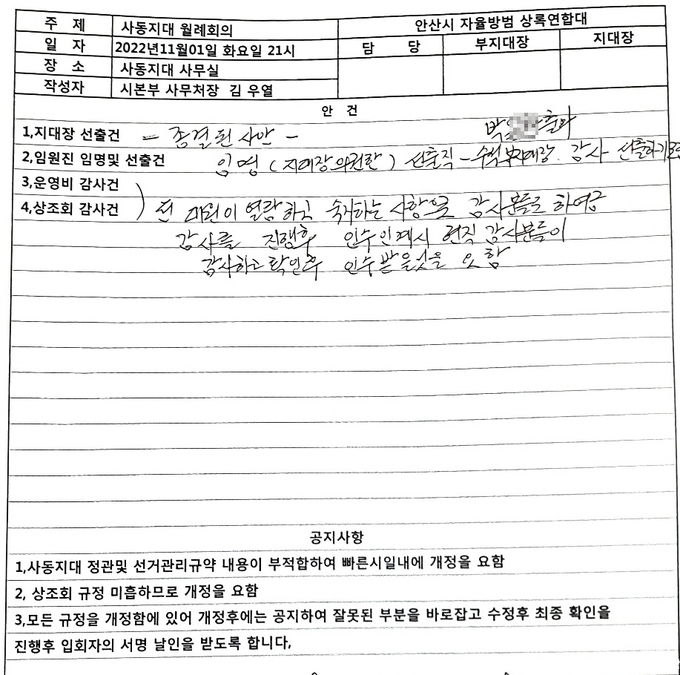 주 제 사동지대 월례회의 안산시 자율방범 상록연합대
일 자 2022년11월01일 화요일 21시 담 당 부지대장 지대장
장 소 사동지대 사무실
작성자 시본부 사무처장 김 우열
안 건
박
1,지대장 선출건 - 종결된 사안 -
2,임원진 임명및 선출건 임명 (지대장의권한) 선출직 - 수석부지대장. 감사 선출하기로
3,운영비 감사건
4,상조회 감사건 전 대원이 열람하고 숙지하는 사항으로 감사분들로 하여금
감사를 진행후 인수인계시 현직 감사분들이
감사하고 확인후 인수 받을것을 요함
공지사항
1,사동지대 정관및 선거관리규약 내용이 부적합하여 빠른시일내에 개정을 요함
2, 상조회 규정 미흡하므로 개정을 요함
3,모든 규정을 개정함에 있어 개정후에는 공지하여 잘못된 부분을 바로잡고 수정후 최종 확인을
진행후 입회자의 서명 날인을 받도록 합니다,